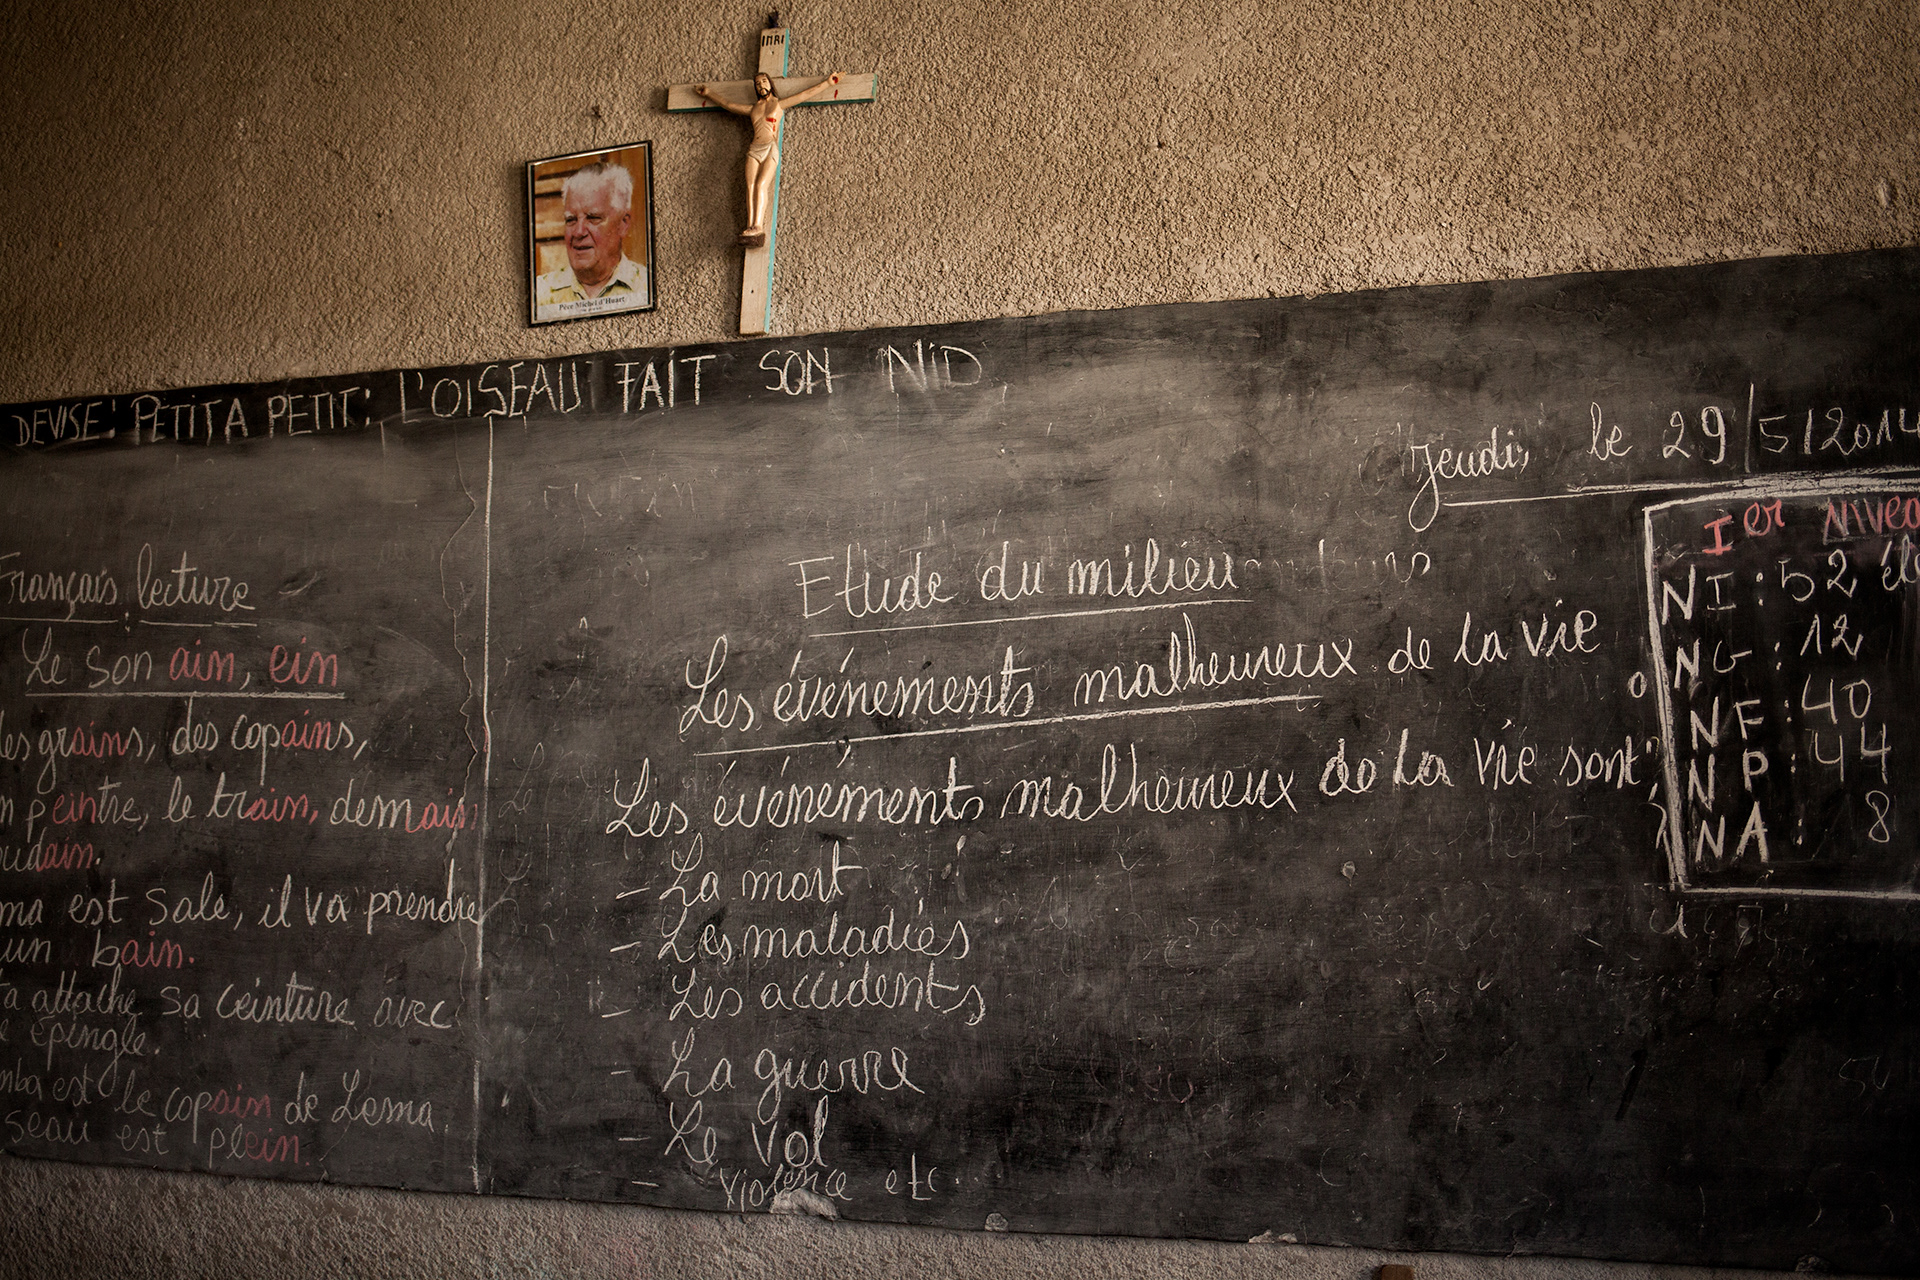 INRI
Père Michel d'Huart
DEVISE: PETIT A PETIT: L'OISEAU FAIT SON NID
Jeudi, le 29/5/2014
Français lecture
Le son ain, ein
des grains, des copains,
n peintre, le train, demain
oudain.
ma est sale, il va prendre
un bain.
ta attache sa ceinture avec
e épingle.
mba est le copain de Lema
seau est plein.
Etude du milieu
Les événements malheureux de la vie
Les événéments malheureux de la vie sont:
- La mort
- Les maladies
- Les accidents
- La guerre
- Le vol
- violence etc..
Ier Nivea
NI: 52 élè
NG: 12
NF: 40
NP: 44
NA: 8